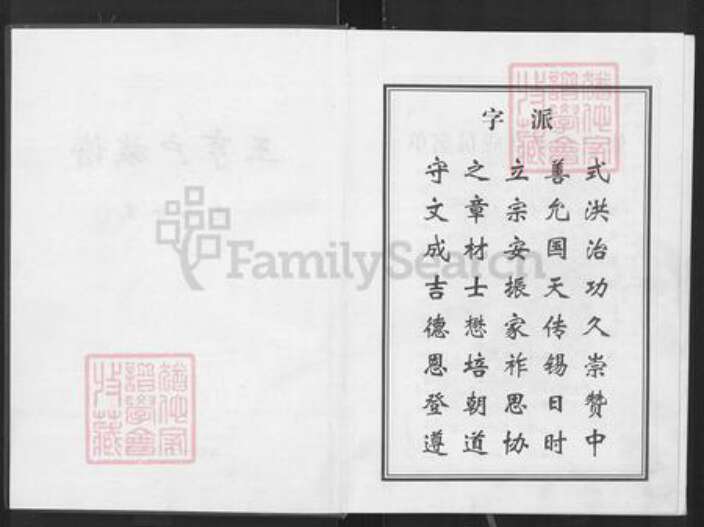 派字
式洪治功久崇赞中
善允国天传锡日时
立宗安振家祚思协
之章材士懋培朝道
守文成吉德恩登遵
FamilySearch